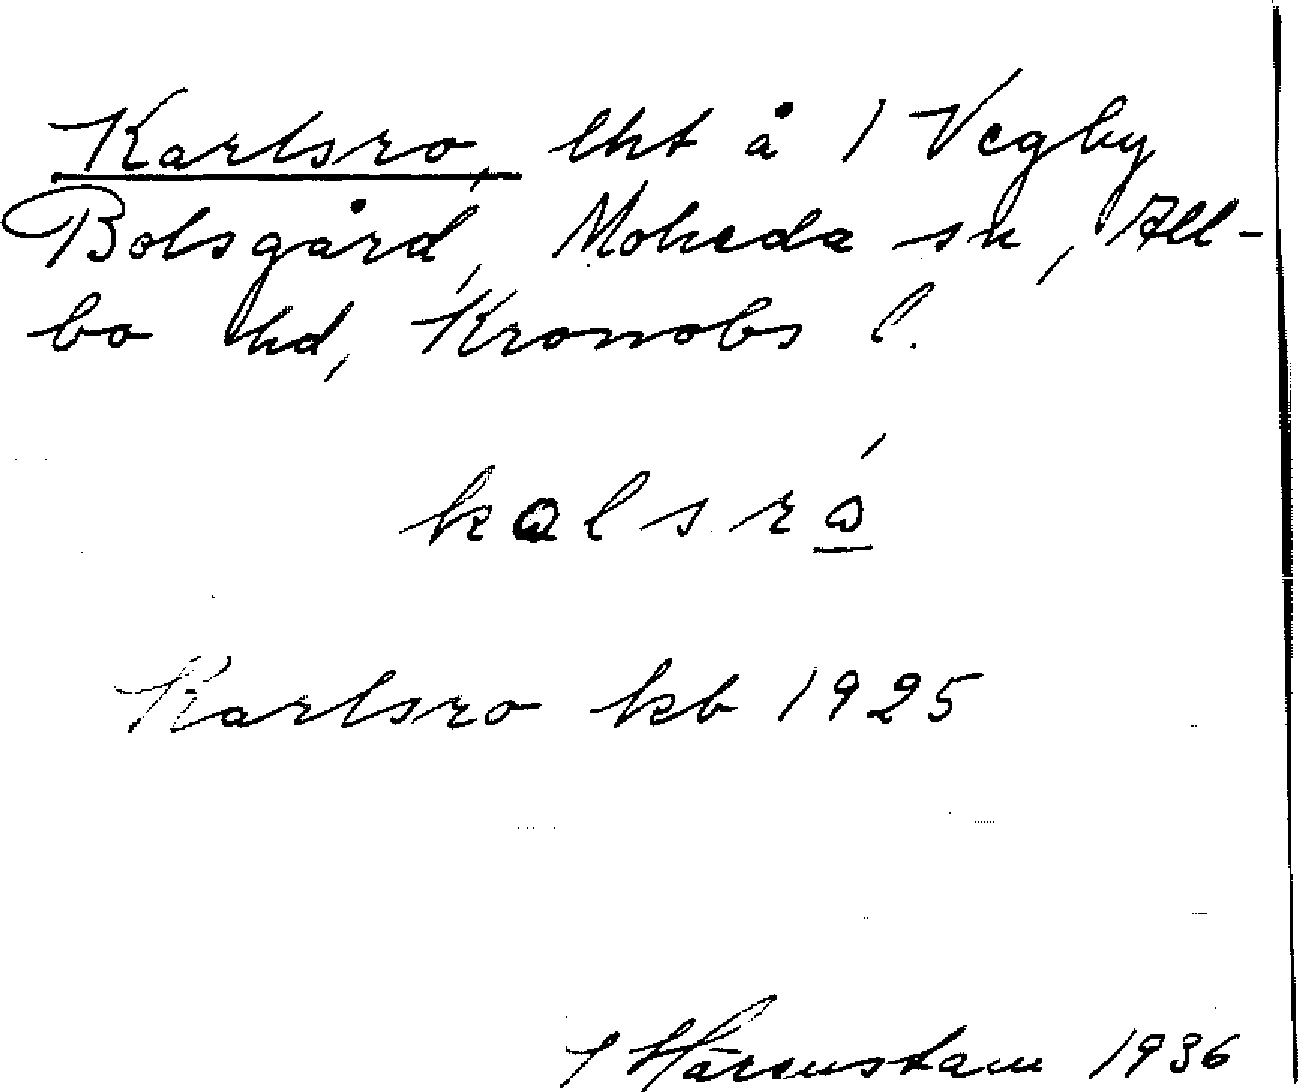 Karlsro, lht å 1 Vegby
Bolsgård, Moheda sn, All-
bo hd, Kronobs l.
kalsrò́
Karlsro kb 1925
J Härenstam 1936